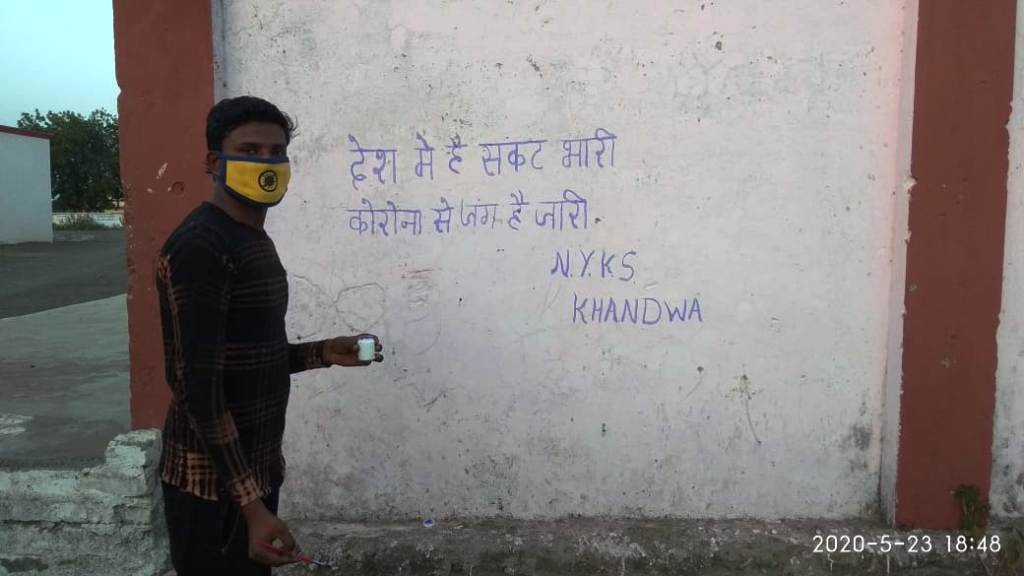 देश मे है संकट भारी
कोरोना से जंग है जारी.
N.Y.K.S.
KHANDWA
2020-5-23 18:48